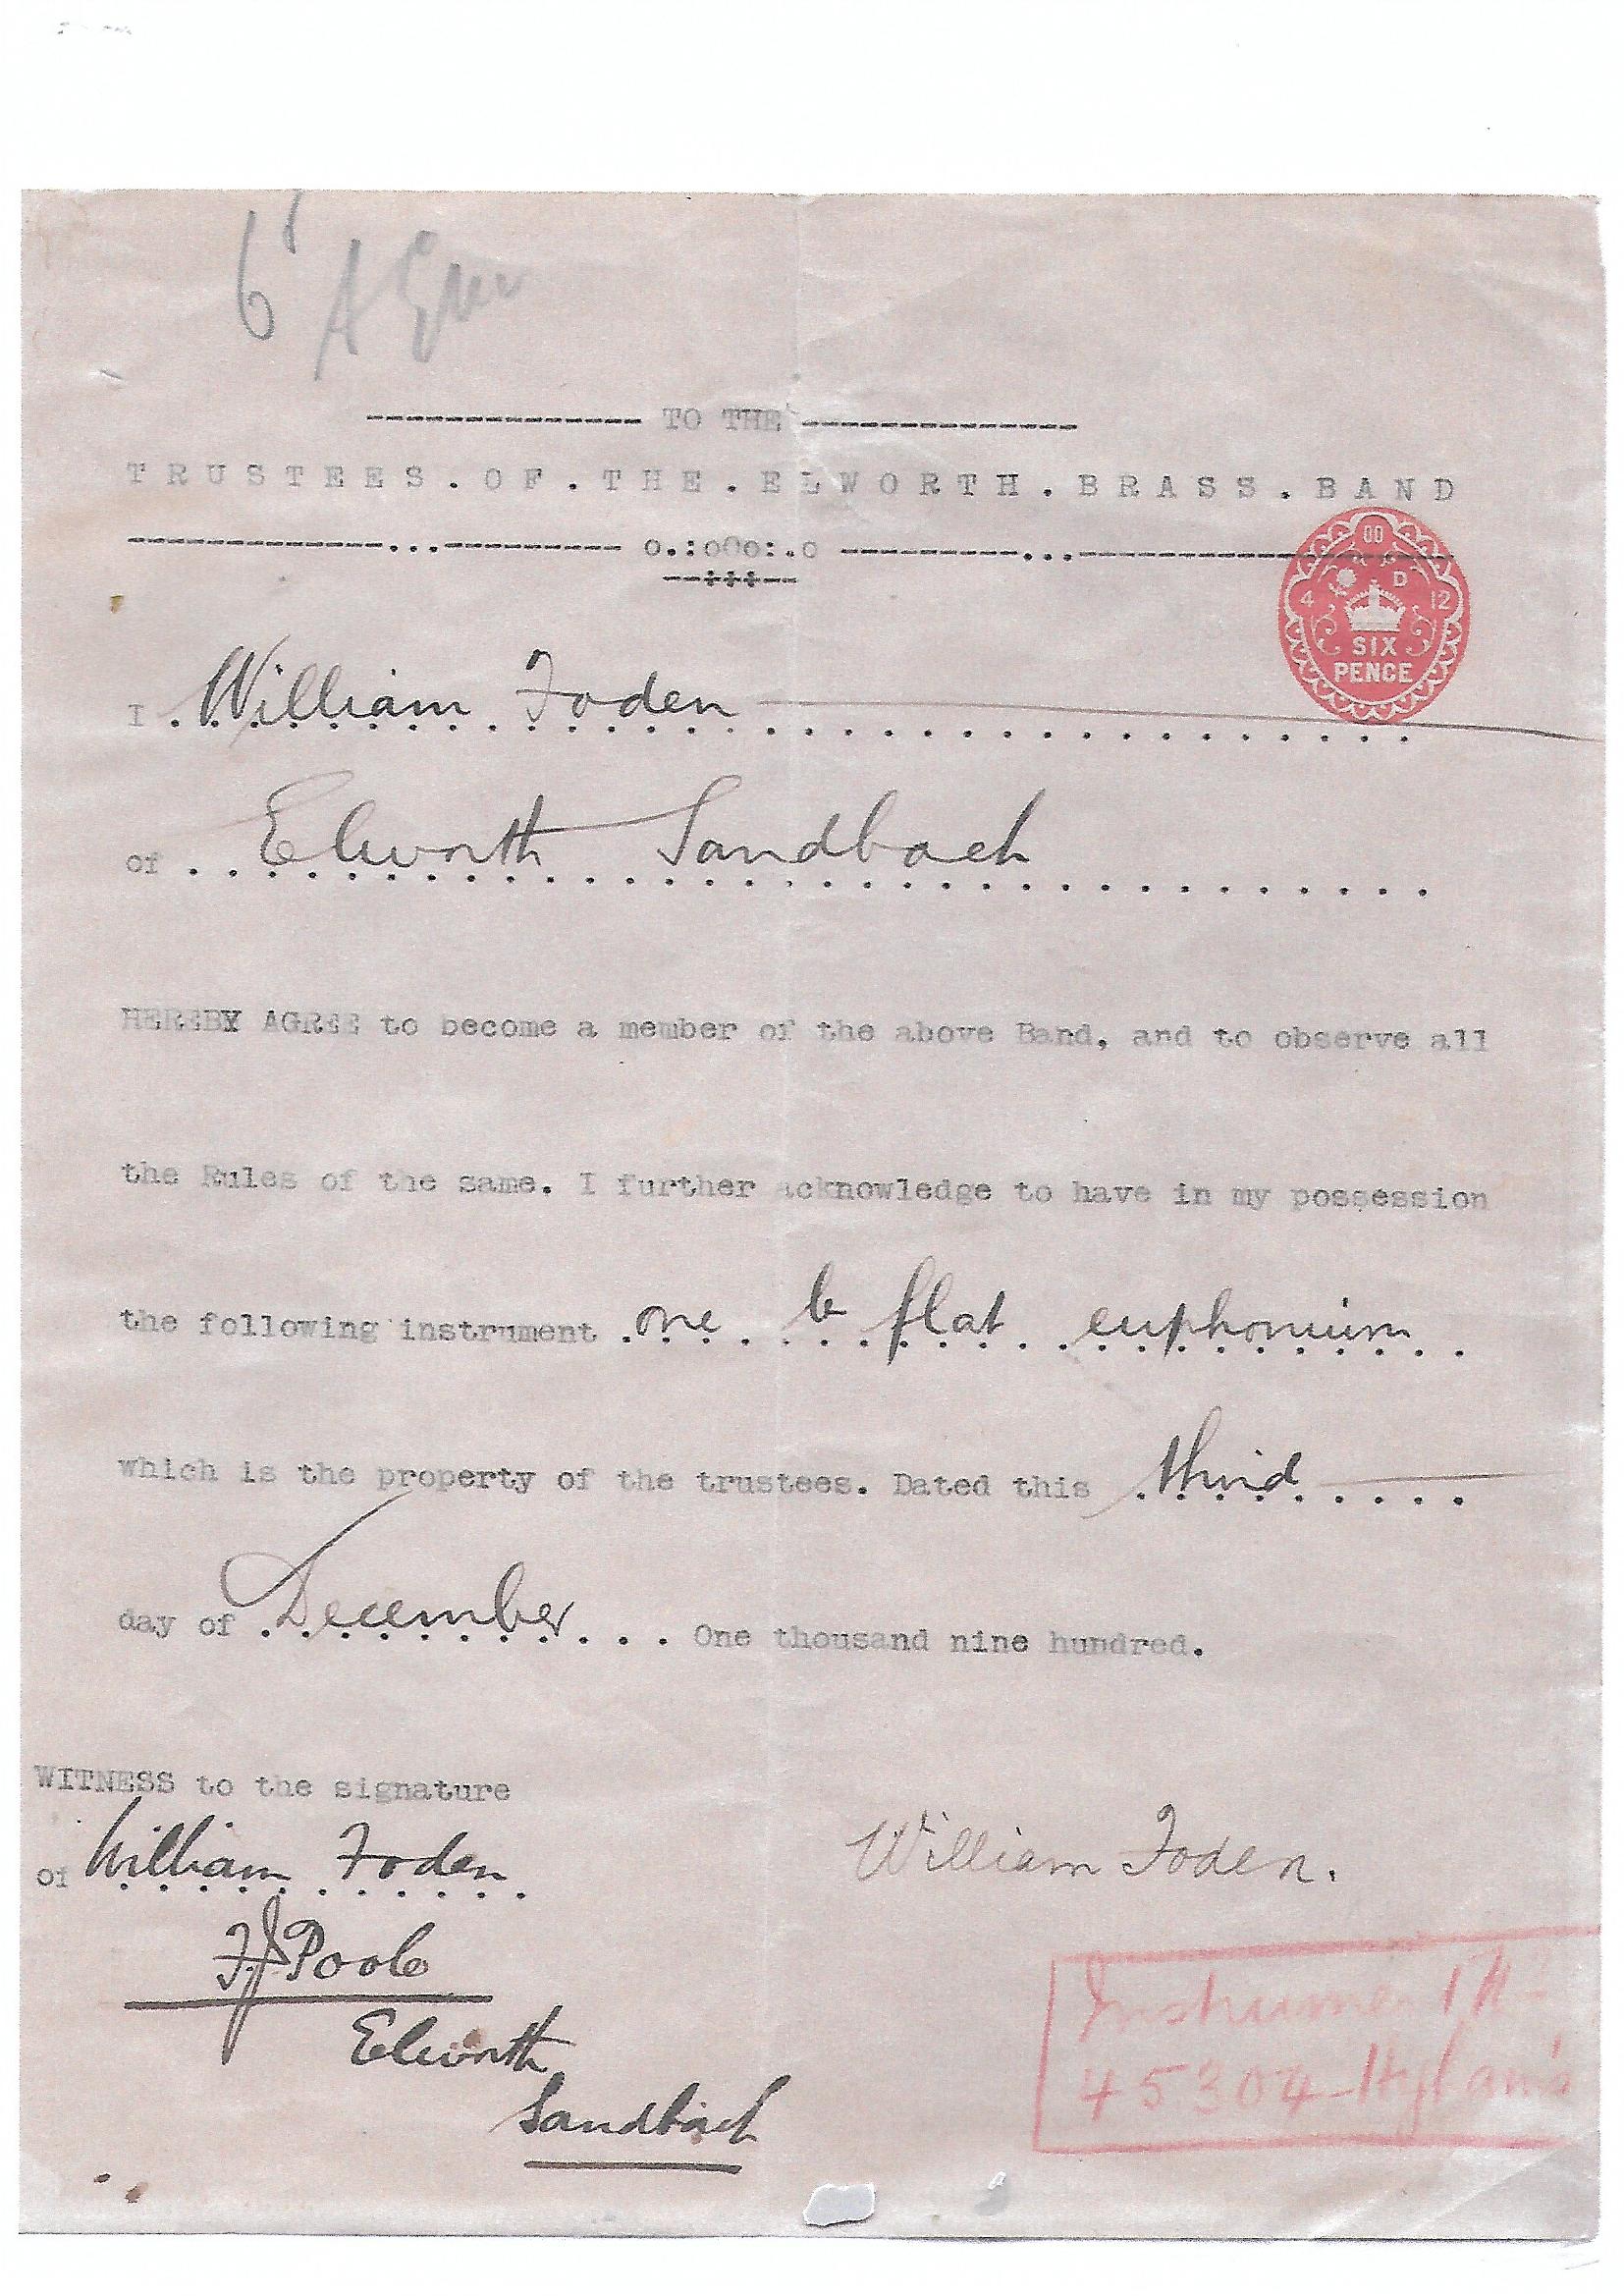 6
---------------- TO THE ----------------
TRUSTEES.OF.THE.ELWORTH.BRASS.BAND
---------------...---------- o.:o0o:.o -----------...----------------------
--+++--
00
D
4 12
SIX
PENCE
I William Foden
of Elworth Sandbach
HEREBY AGREE to become a member of the above Band, and to observe all
the Rules of the same. I further acknowledge to have in my possession
the following instrument one b flat euphonium
which is the property of the trustees. Dated this third
day of December One thousand nine hundred.
WITNESS to the signature
of William Foden
William Foden.
FJ Poole
Elworth
Sandbach
Instrument
45304